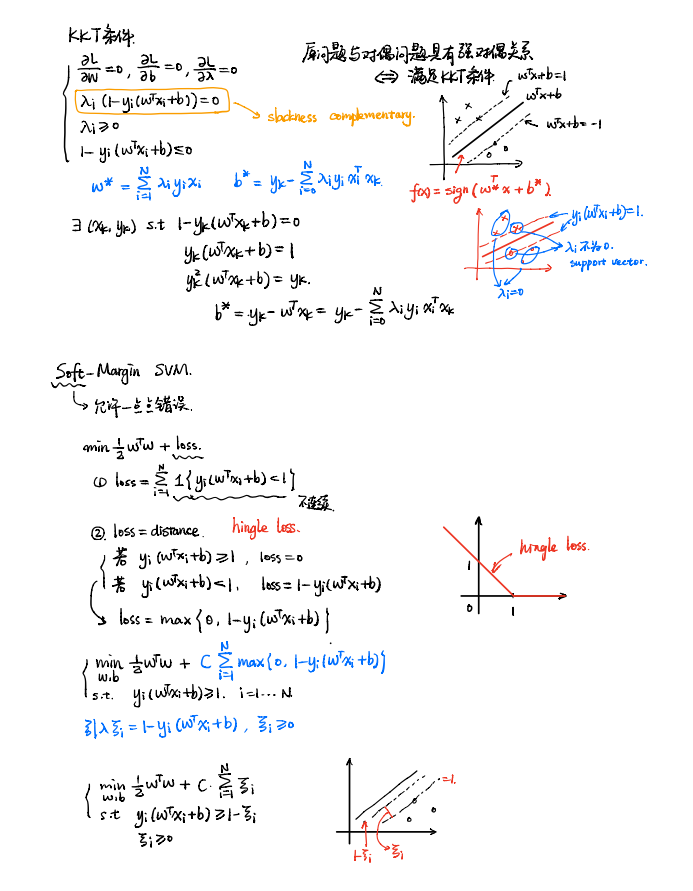 KKT条件.
∂L/∂w = 0, ∂L/∂b = 0, ∂L/∂λ = 0
λi (1-yi(wᵀxi+b)) = 0
→ slackness complementary.
λi ≥ 0
1-yi(wᵀxi+b) ≤ 0
原问题与对偶问题具有强对偶关系
⇔ 满足KKT条件
wᵀx+b=1
wᵀx+b
wᵀx+b=-1
f(x)=sign(w*ᵀx+b*)
w* = Σ_{i=1}^{N} λi yi xi
b* = yk - Σ_{i=0}^{N} λi yi xiᵀ xk.
∃ (xk, yk) s.t 1-yk(wᵀxk+b)=0
yk(wᵀxk+b)=1
yk²(wᵀxk+b)=yk.
b* = yk - wᵀxk = yk - Σ_{i=0}^{N} λi yi xiᵀ xk
yi(wᵀxi+b)=1.
λi 不为0.
support vector.
λi=0
Soft-Margin SVM.
↳ 允许一点点错误.
min ½ wᵀw + loss.
① loss = Σ_{i=1}^{N} 1{yi(wᵀxi+b)<1}
不连续
② loss = distance. hingle loss.
若 yi(wᵀxi+b) ≥ 1, loss=0
若 yi(wᵀxi+b) < 1, loss = 1-yi(wᵀxi+b)
loss = max{0, 1-yi(wᵀxi+b)}
hingle loss.
1
0 1
min_{w,b} ½ wᵀw + C Σ_{i=1}^{N} max{0, 1-yi(wᵀxi+b)}
s.t. yi(wᵀxi+b) ≥ 1. i=1⋯N
引入 ξi = 1-yi(wᵀxi+b), ξi ≥ 0
min_{w,b} ½ wᵀw + C · Σ_{i=1}^{N} ξi
s.t yi(wᵀxi+b) ≥ 1-ξi
ξi ≥ 0
=1.
1-ξi
ξi